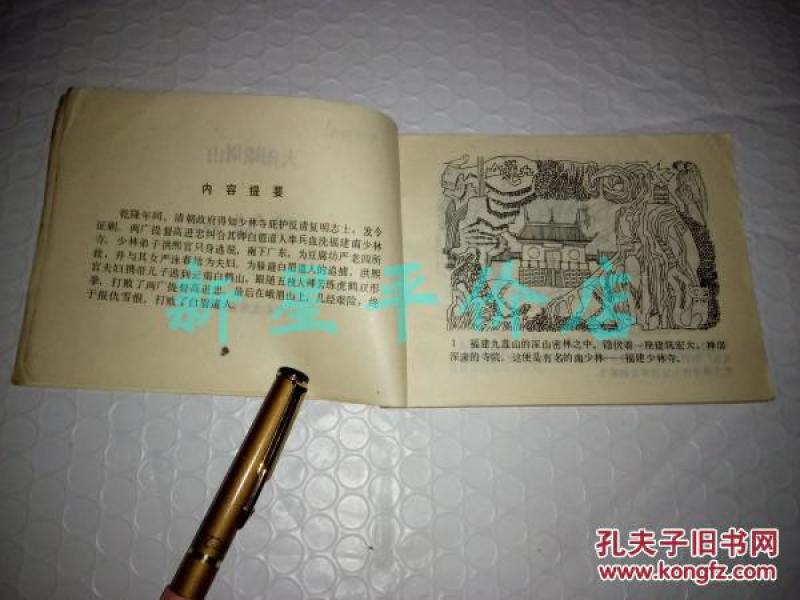 内容提要
乾隆年间,清朝政府得知少林寺庇护反清复明志士,发令
征剿。两广提督高进忠纠合其师白眉道人率兵血洗福建南少林
寺。少林弟子洪熙官只身逃脱,南下广东,为豆腐坊严老四所
救,并与其女严泳春结为夫妇。为躲避白眉道人的追捕,洪熙
官夫妇携带儿子逃到云南白鹤山,跟随五枚大师苦练虎鹤双形
拳,打败了两广提督高进忠。最后在峨眉山上,几经艰险,终
于报仇雪恨,打败了白眉道人。
1 福建九莲山的深山密林之中,隐伏着一座建筑宏大、禅房
深邃的寺院。这便是有名的南少林——福建少林寺。
新星平价店
孔夫子旧书网
www.kongfz.com